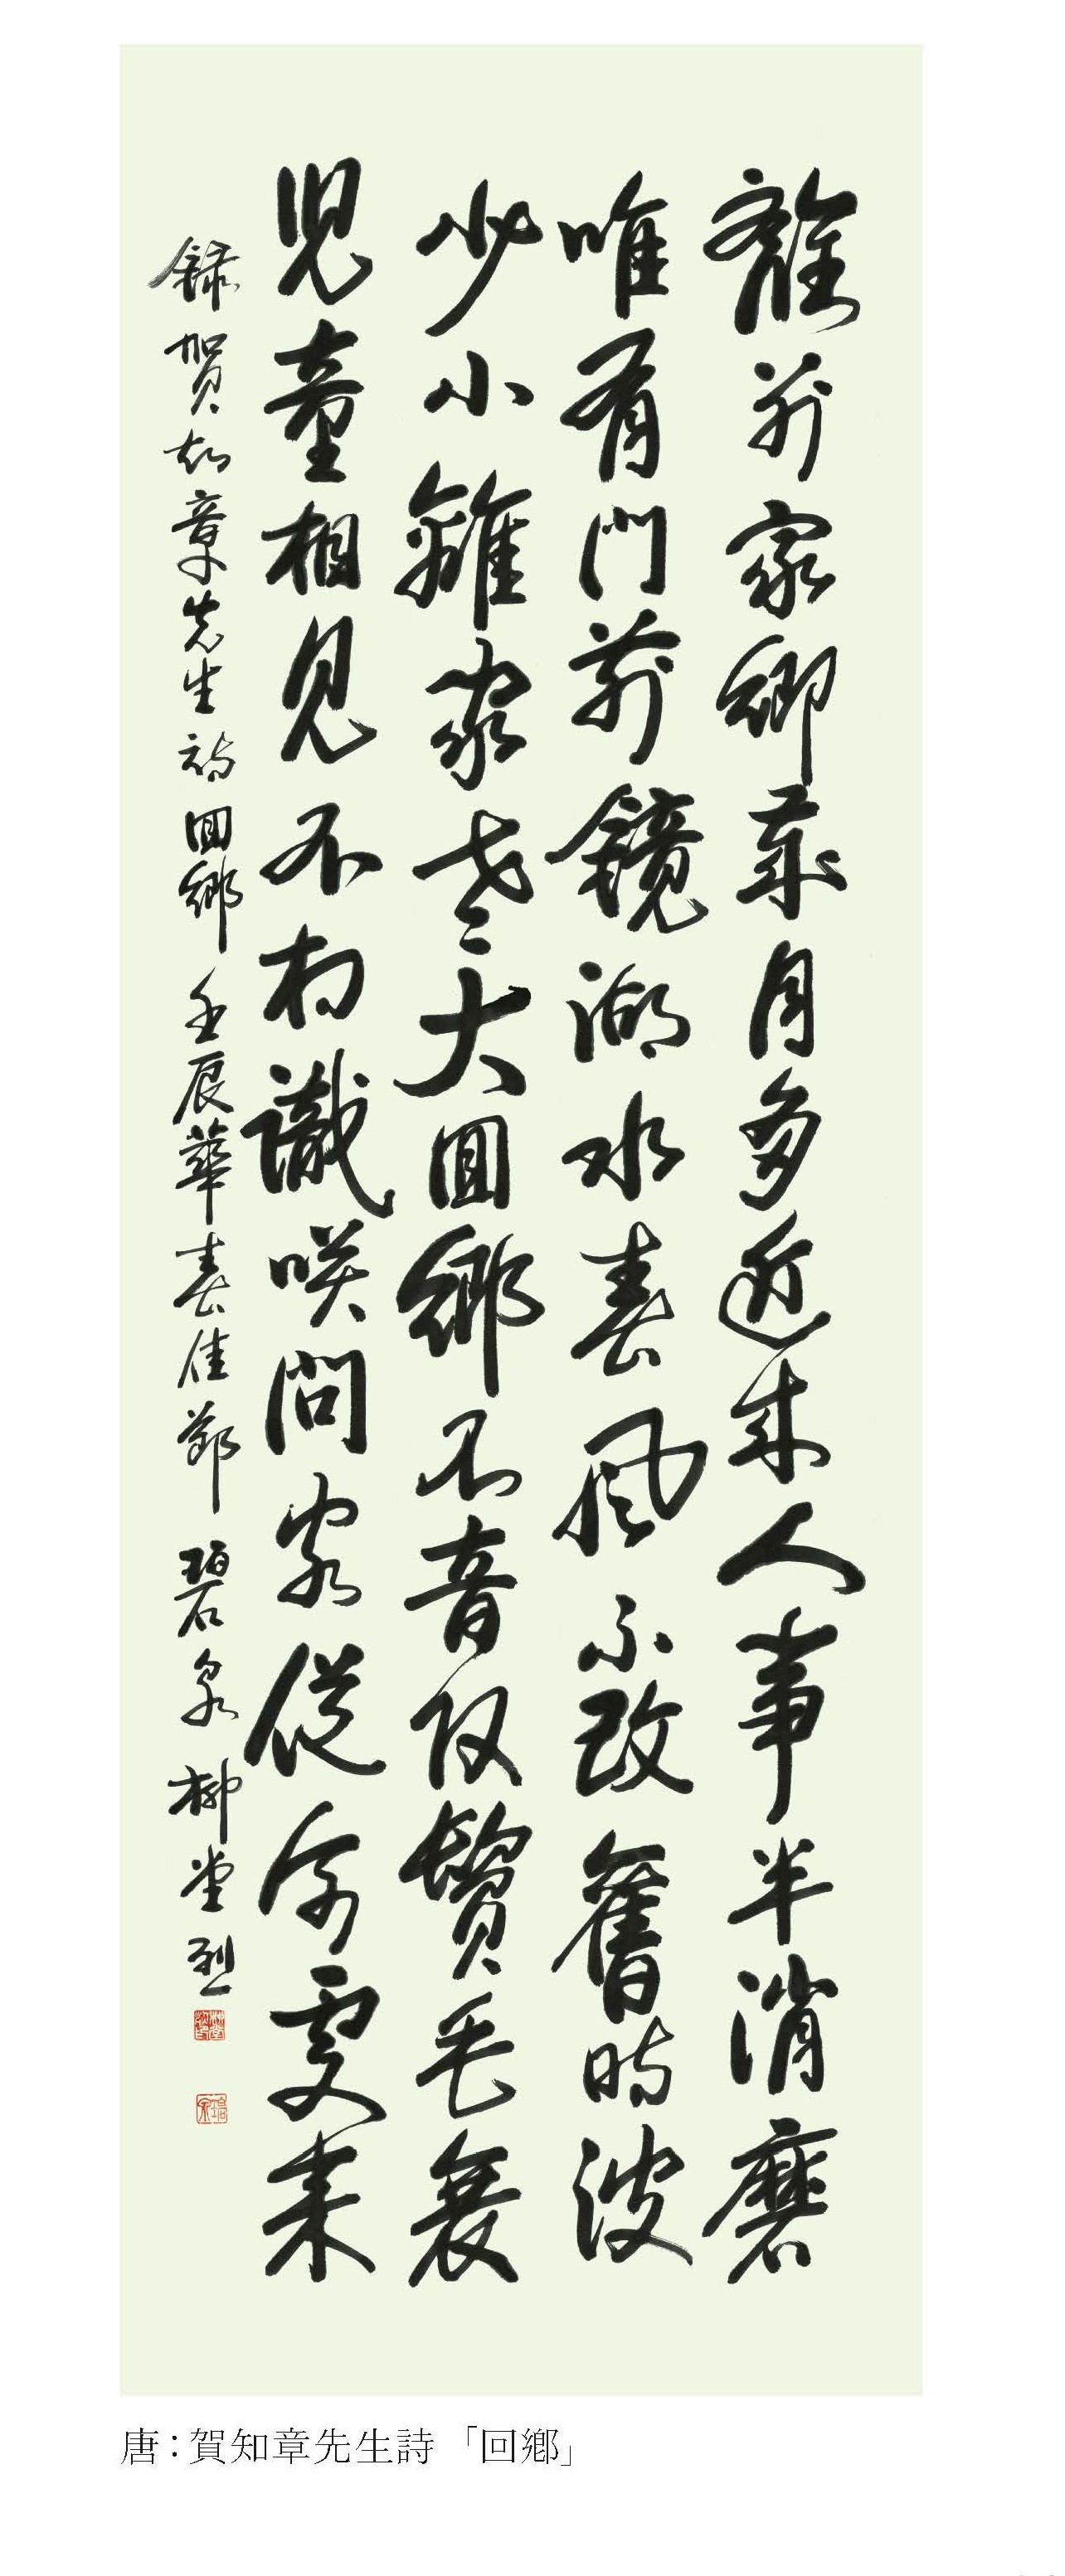 離別家鄉歲月多近來人事半消磨
唯有門前鏡湖水春風不改舊時波
少小離家老大回鄉不音改鬢毛衰
兒童相見不相識咲問客從何處来
錄賀知章先生詩回鄉壬辰華春佳節 碧泉柳堂烈
唐：賀知章先生詩「回鄉」